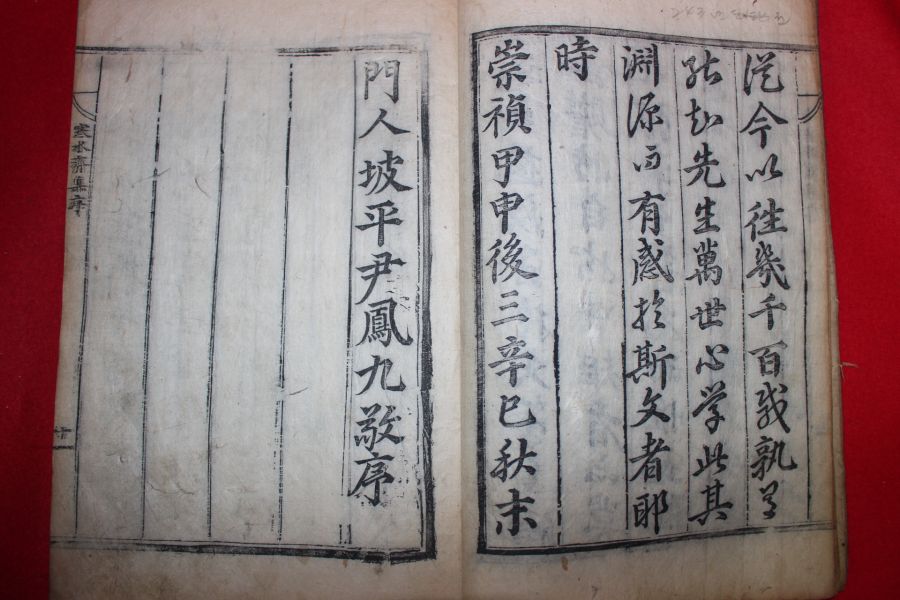 從今以徃幾千百載孰有
能知先生萬世心學此其
淵源而有感於斯文者耶
時
崇禎甲申後三辛巳秋末
門人坡平尹鳳九敬序
寒水齋集序